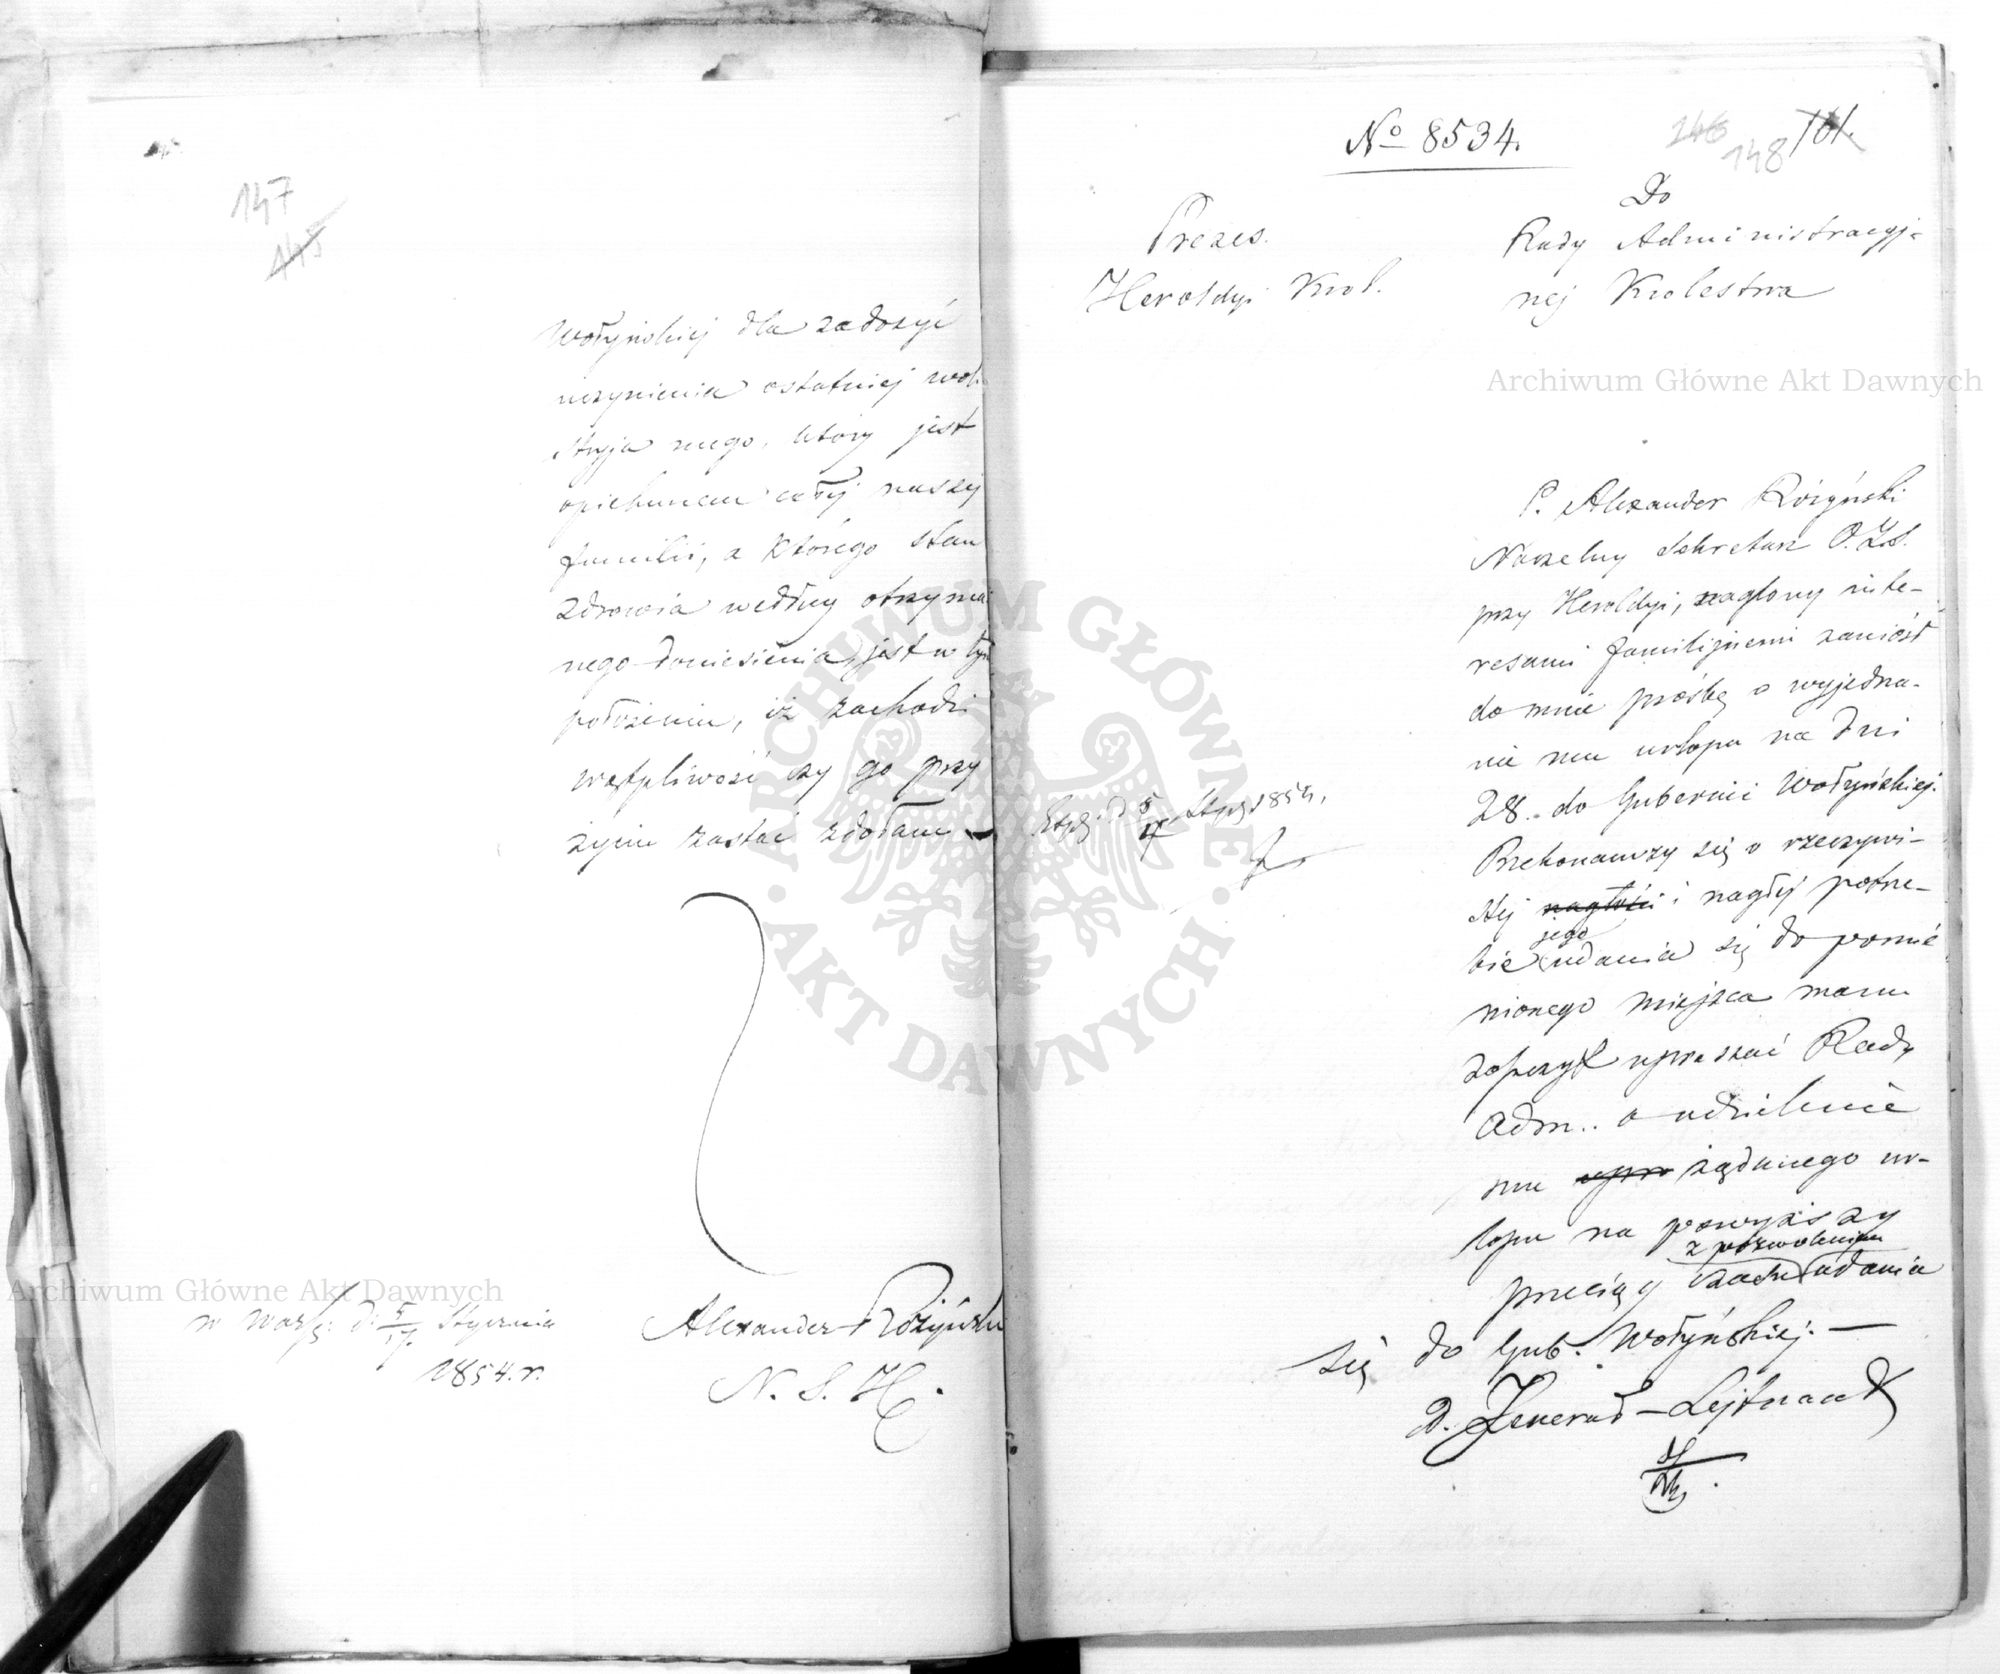 147
145
Wołyńskiej dla zadosyć
uczynienia ostatniej woli
stryja mego, który jest
opiekunem całej naszej
familii, a którego stan
zdrowia według otrzyma
nego doniesienia, jest w tym
położeniu, iż zachodzi
wątpliwość czy go przy
życiu zastać zdołam
w Warsz: d: 5/17 Stycznia
1854. r.
Alexander Różyński
N. S. H.
No 8534.
146
148
161.
Prezes.
Heroldyi Król.
Do
Rady Administracyj-
nej Królestwa
P. Alexander Różyński
Naczelny Sekretarz
przy Heroldyi, naglony inte-
resami familijnemi zaniósł
do mnie prośbę o wyjedna-
nie mu urlopu na dni
28. do Gubernii Wołyńskiej.
5/17 Stycz 1854.
Przekonawszy się o rzeczywi-
stej nagłości i nagłej potrze-
bie jego udania się do pomie
nionego miejsca mam
zaszczyt upraszać Rady
Adm.. o udzielenie
mu upro żądanego ur-
lopu na powyższy
przeciąg z pozwoleniem udania
się do Gub. Wołyńskiej. —
D. Jenerał-Lejtnant
Archiwum Główne Akt Dawnych
Archiwum Główne Akt Dawnych
ARCHIWUM GŁÓWNE · AKT DAWNYCH ·